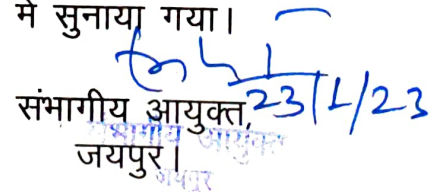 में सुनाया गया।
23/1/23
संभागीय आयुक्त,
जयपुर।
संभागीय आयुक्त
जयपुर